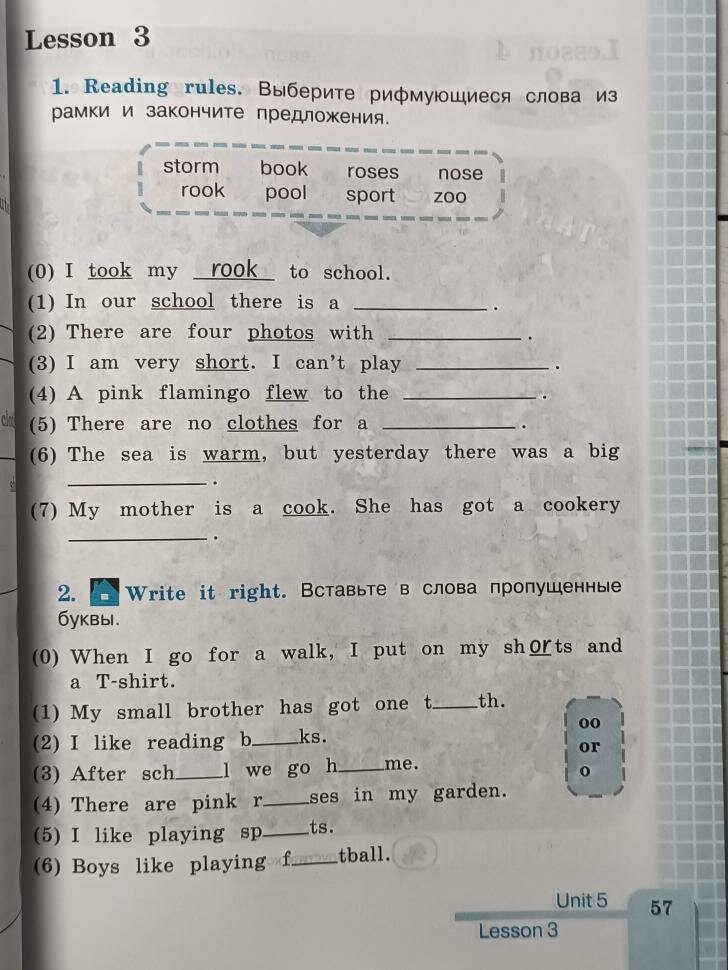 Lesson 3
1. Reading rules. Выберите рифмующиеся слова из
рамки и закончите предложения.
storm book roses nose
rook pool sport zoo
(0) I took my rook to school.
(1) In our school there is a ________ .
(2) There are four photos with ________ .
(3) I am very short. I can't play ________ .
(4) A pink flamingo flew to the ________ .
(5) There are no clothes for a ________ .
(6) The sea is warm, but yesterday there was a big
________ .
(7) My mother is a cook. She has got a cookery
________ .
2. Write it right. Вставьте в слова пропущенные
буквы.
(0) When I go for a walk, I put on my shorts and
a T-shirt.
(1) My small brother has got one t___th.
(2) I like reading b___ks.
(3) After sch___l we go h___me.
(4) There are pink r___ses in my garden.
(5) I like playing sp___ts.
(6) Boys like playing f___tball.
oo
or
o
Unit 5
Lesson 3
57